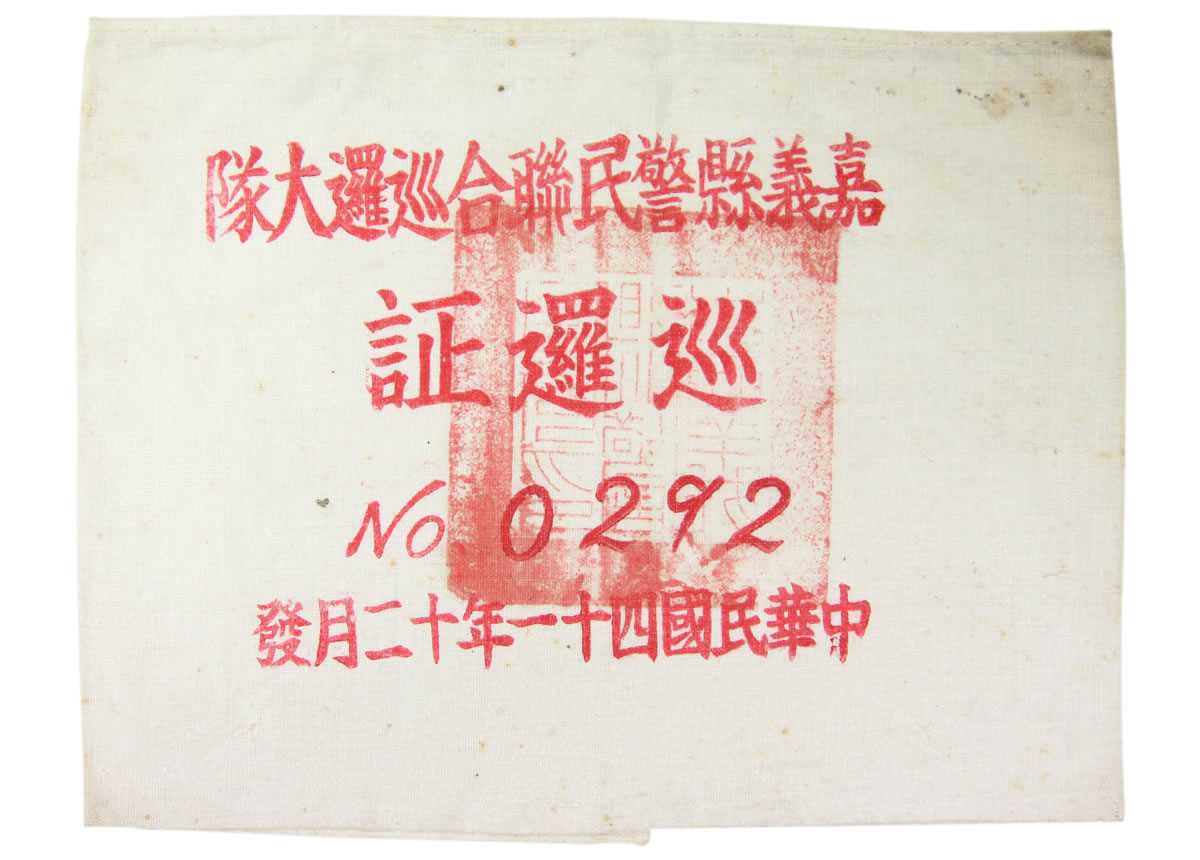 嘉義縣警民聯合巡邏大隊
巡邏証
No 0292
中華民國四十一年十二月發